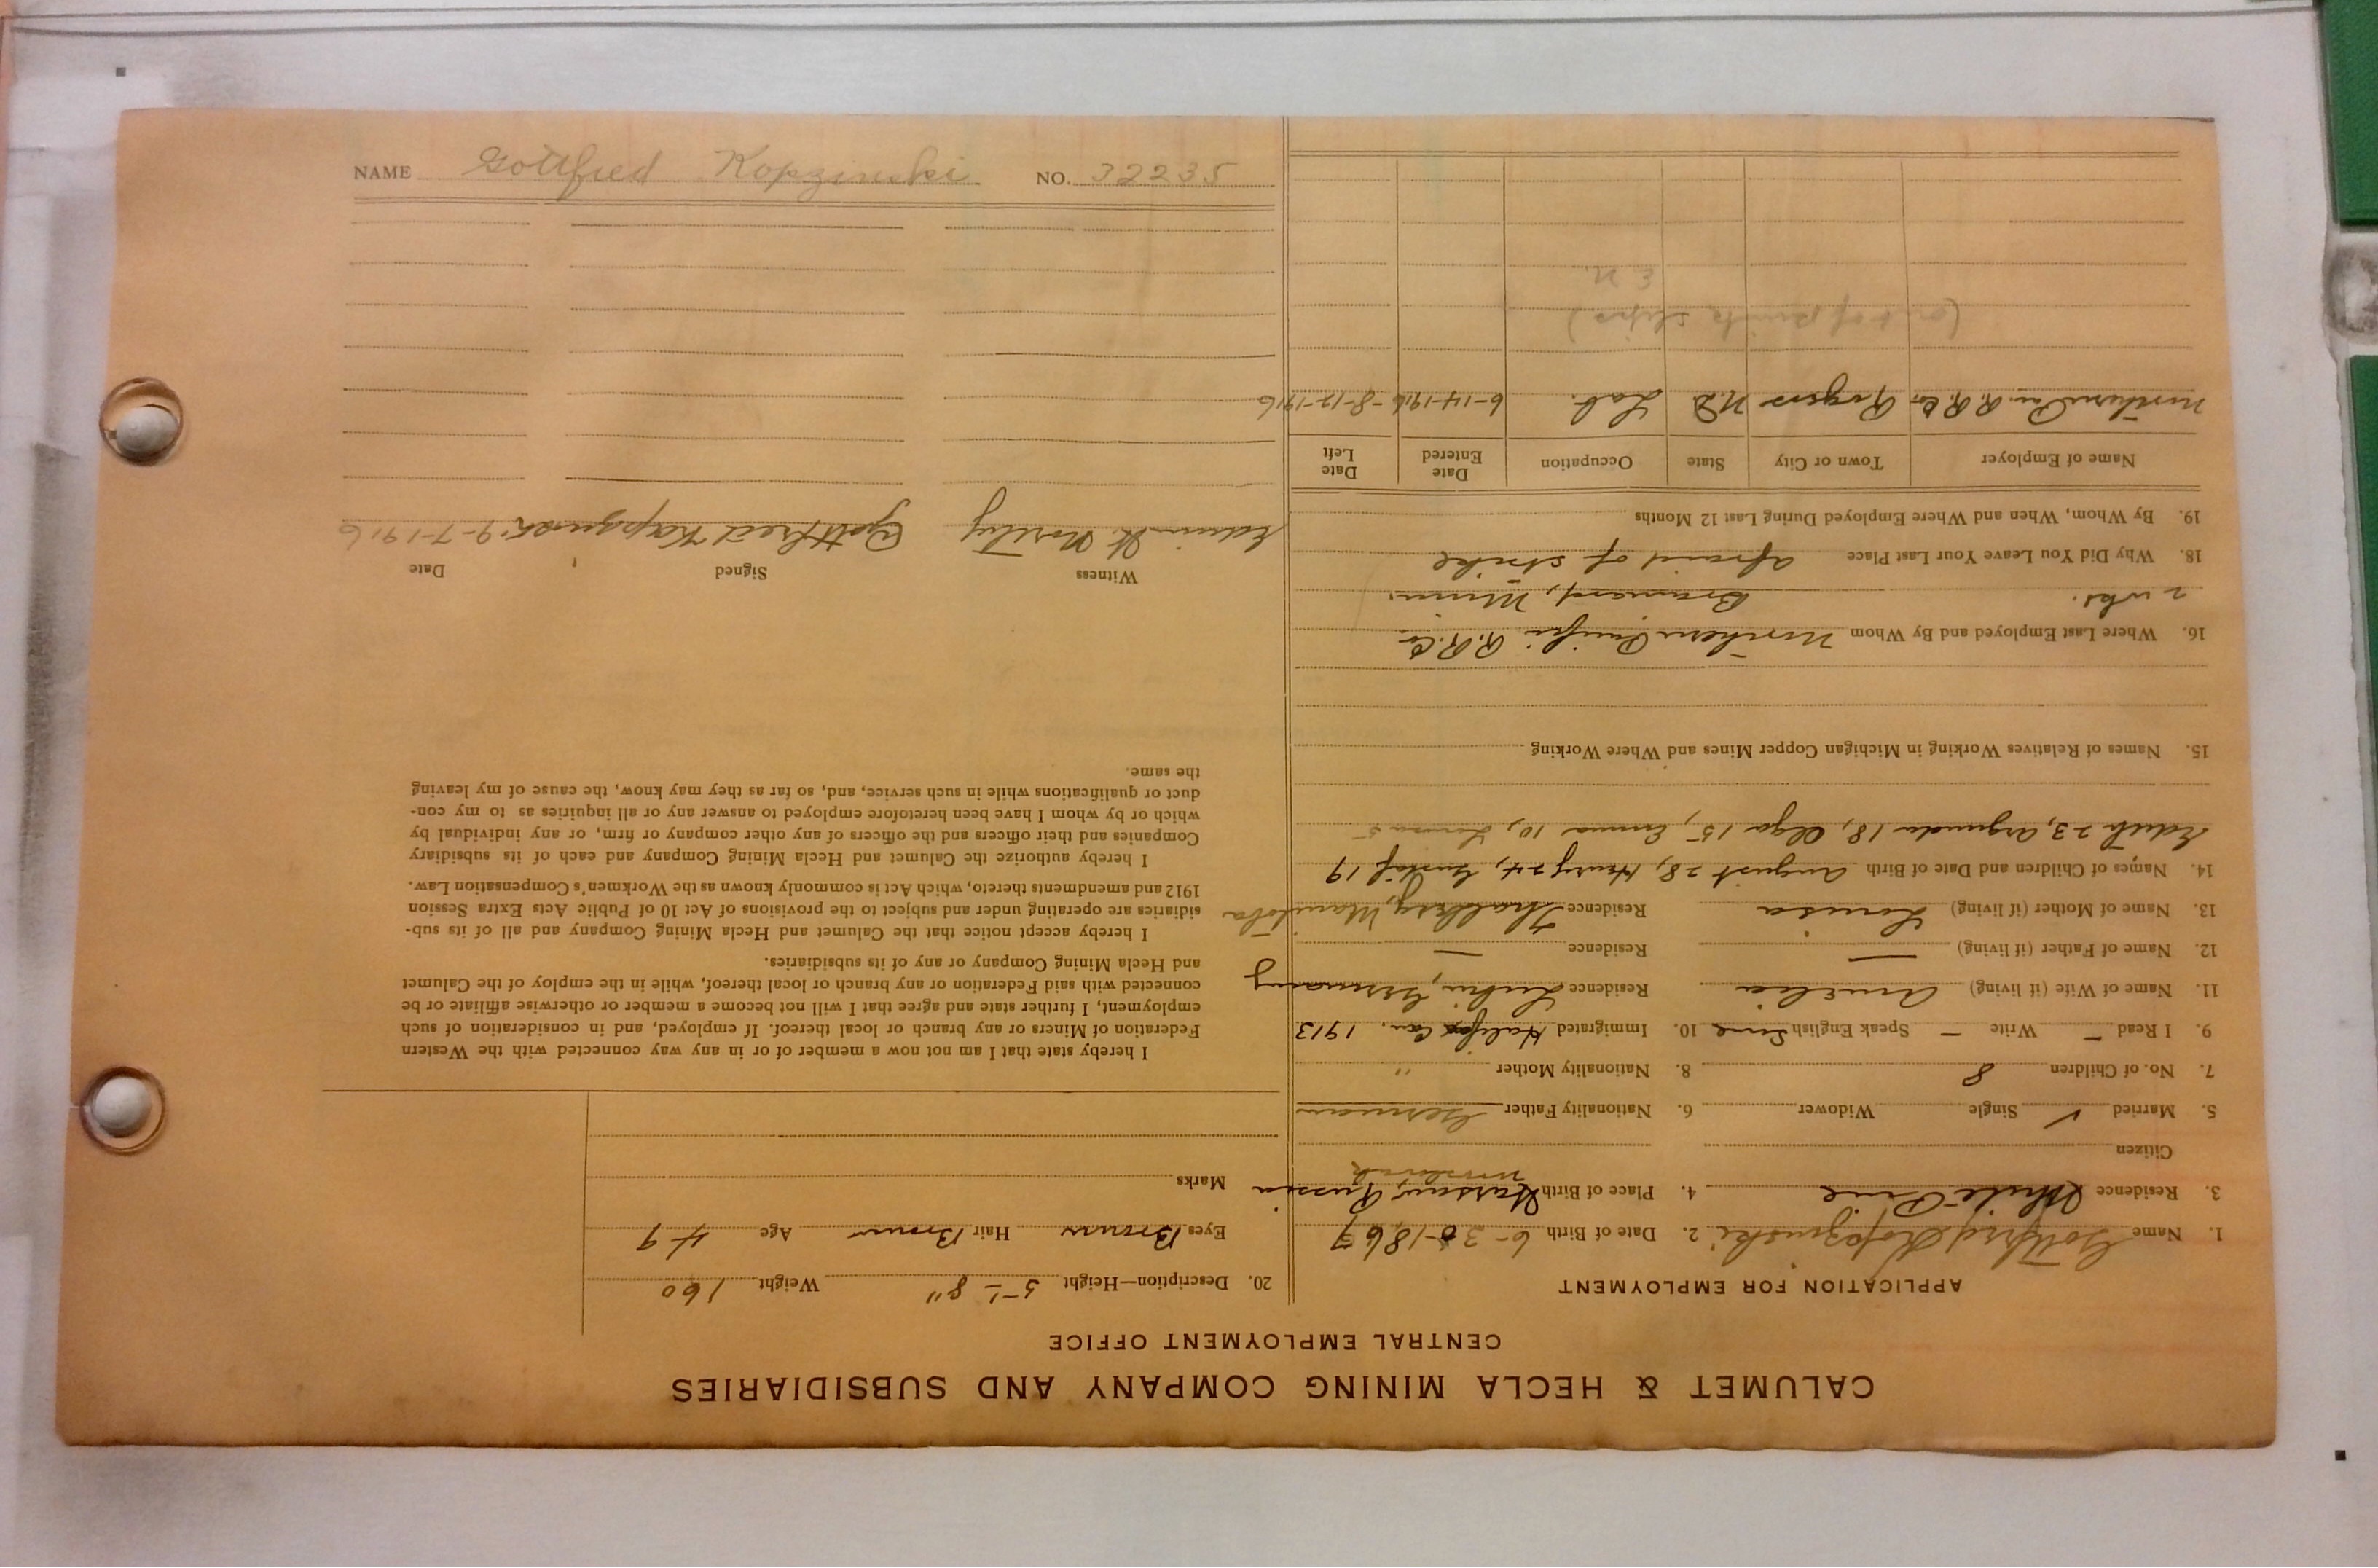 CALUMET & HECLA MINING COMPANY AND SUBSIDIARIES
CENTRAL EMPLOYMENT OFFICE
APPLICATION FOR EMPLOYMENT
1. Name Gottfried Kopzinski 2. Date of Birth 6-30-1867
3. Residence White Pine 4. Place of Birth Warsaw, Russia
Citizen
5. Married ✓ Single Widower 6. Nationality Father German
7. No. of Children 8 8. Nationality Mother "
9. I Read – Write – Speak English Some 10. Immigrated Halifax Can. 1913
11. Name of Wife (if living) Amelia Residence Germany
12. Name of Father (if living) — Residence —
13. Name of Mother (if living) Louisa Residence Manitoba
14. Names of Children and Date of Birth August 28, Henry 24, Gustaf 19
Edith 23, 18, Olga 15, Emma 10, 5
15. Names of Relatives Working in Michigan Copper Mines and Where Working
16. Where Last Employed and By Whom Northern Pacific R.R. Co.
2 wks. Brainerd, Minn.
18. Why Did You Leave Your Last Place afraid of strike
19. By Whom, When and Where Employed During Last 12 Months
Name of Employer Town or City State Occupation Date Entered Date Left
Northern Pac. R.R. Co. Rogers N.D. Lab. 6-14-1916 8-12-1916
(out of slips)
E N.
20. Description—Height 5'-8" Weight 160
Eyes Brown Hair Brown Age 49
Marks
I hereby state that I am not now a member of or in any way connected with the Western
Federation of Miners or any branch or local thereof. If employed, and in consideration of such
employment, I further state and agree that I will not become a member or otherwise affiliate or be
connected with said Federation or any branch or local thereof, while in the employ of the Calumet
and Hecla Mining Company or any of its subsidiaries.
I hereby accept notice that the Calumet and Hecla Mining Company and all of its sub-
sidiaries are operating under and subject to the provisions of Act 10 of Public Acts Extra Session
1912 and amendments thereto, which Act is commonly known as the Workmen's Compensation Law.
I hereby authorize the Calumet and Hecla Mining Company and each of its subsidiary
Companies and their officers and the officers of any other company or firm, or any individual by
which or by whom I have been heretofore employed to answer any or all inquiries as to my con-
duct or qualifications while in such service, and, so far as they may know, the cause of my leaving
the same.
Witness Signed Date
Edwin Gottfried 9-7-1916
NAME Gottfried Kopzinski NO. 32235